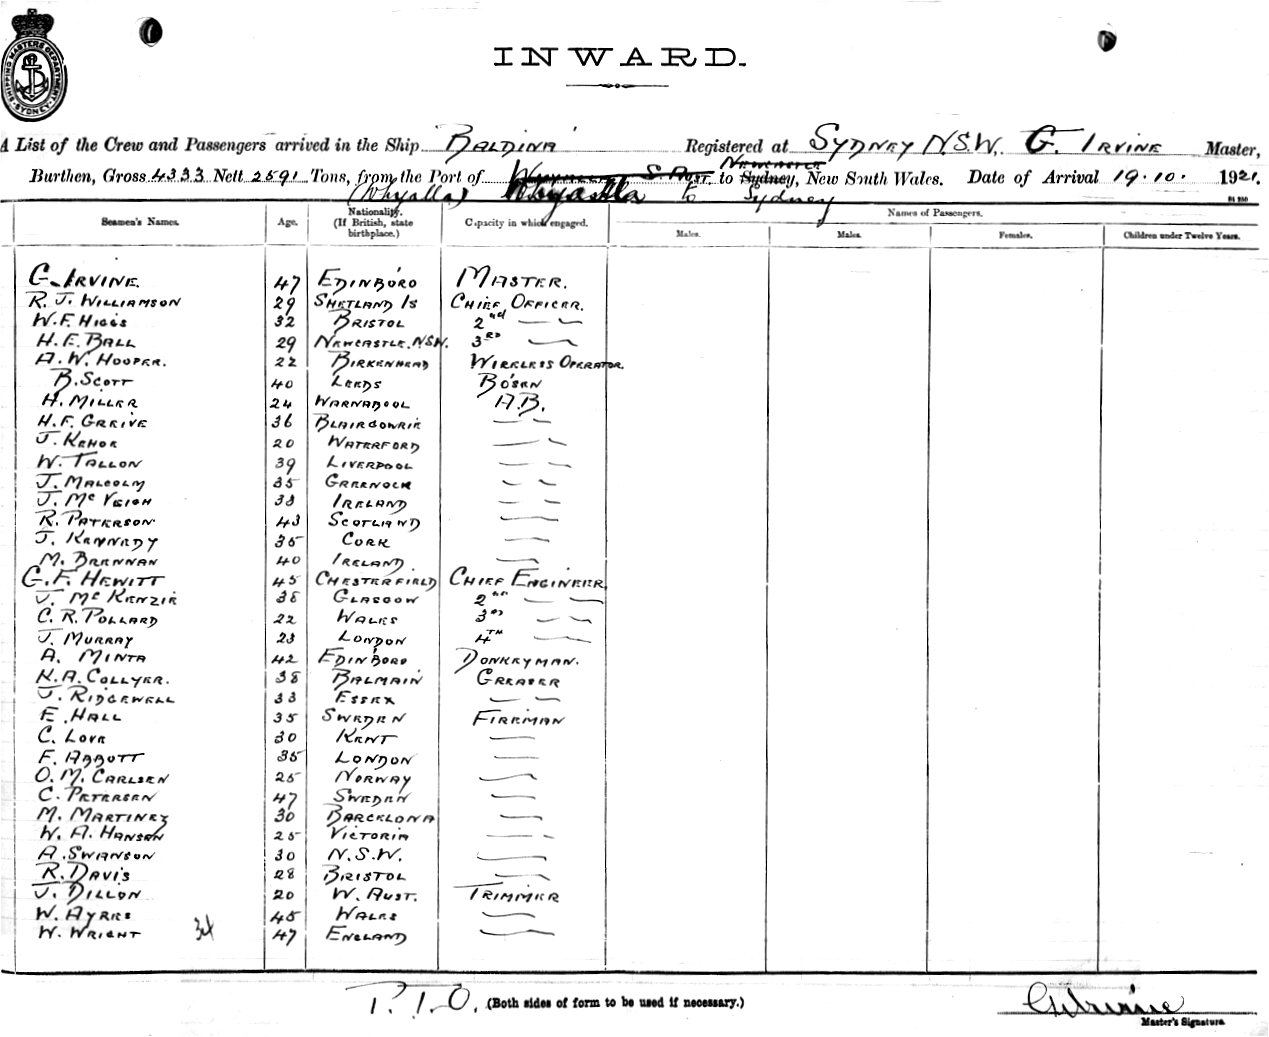 SHIPPING MASTERS DEPARTMENT SYDNEY
INWARD.
A List of the Crew and Passengers arrived in the Ship "BALDINA" Registered at SYDNEY N.S.W. G. IRVINE Master,
Burthen, Gross 4333 Nett 2591 Tons, from the Port of S. Aust. to Newcastle Sydney, New South Wales. Date of Arrival 19.10. 1921.
(Whyalla) Whyalla to Sydney
Seamen's Names. Age. Nationality. (If British, state birthplace.) Capacity in which engaged. Names of Passengers.
Males. Males. Females. Children under Twelve Years.
G. IRVINE. 47 EDINBORO MASTER.
R. J. WILLIAMSON 29 SHETLAND IS CHIEF OFFICER.
W. F. HIGGS 32 BRISTOL 2nd — —
H. E. BALL 29 NEWCASTLE. NSW. 3RD —
A. W. HOOPER. 22 BIRKENHEAD WIRELESS OPERATOR.
B. SCOTT 40 LEEDS BO'SEN
H. MILLER 24 WARNABOOL A.B.
H. F. GREIVE 36 BLAIRGOWRIE — —
J. KEHOE 20 WATERFORD — —
W. TALLON 39 LIVERPOOL — —
J. MALCOLM 35 GREENOCK — —
J. McVEIGH 33 IRELAND — —
R. PATERSON. 43 SCOTLAND —
J. KENNEDY 35 CORK —
M. BRENNAN 40 IRELAND. —
G. F. HEWITT 45 CHESTERFIELD CHIEF ENGINEER
J. McKENZIE 38 GLASGOW 2nd — —
C. R. POLLARD 22 WALES 3RD — —
J. MURRAY 23 LONDON 4TH —
A. MINTA 42 EDINBORO DONKEYMAN.
K. A. COLLYER. 38 BALMAIN GREASER
J. RIDGEWELL 33 ESSEX — —
E. HALL 35 SWEDEN FIREMAN
C. LOVE 30 KENT —
F. ABBOTT 35 LONDON —
O. M. CARLSEN 25 NORWAY —
C. PETERSEN 47 SWEDEN —
M. MARTINEZ 30 BARCELONA —
W. A. HANSEN 25 VICTORIA —
A. SWANSON 30 N.S.W. —
R. DAVIS 28 BRISTOL —
J. DILLON 20 W. AUST. TRIMMER
W. AYRES 45 WALES —
W. WRIGHT 34 47 ENGLAND —
P.T.O. (Both sides of form to be used if necessary.) G Irvine
Master's Signature.